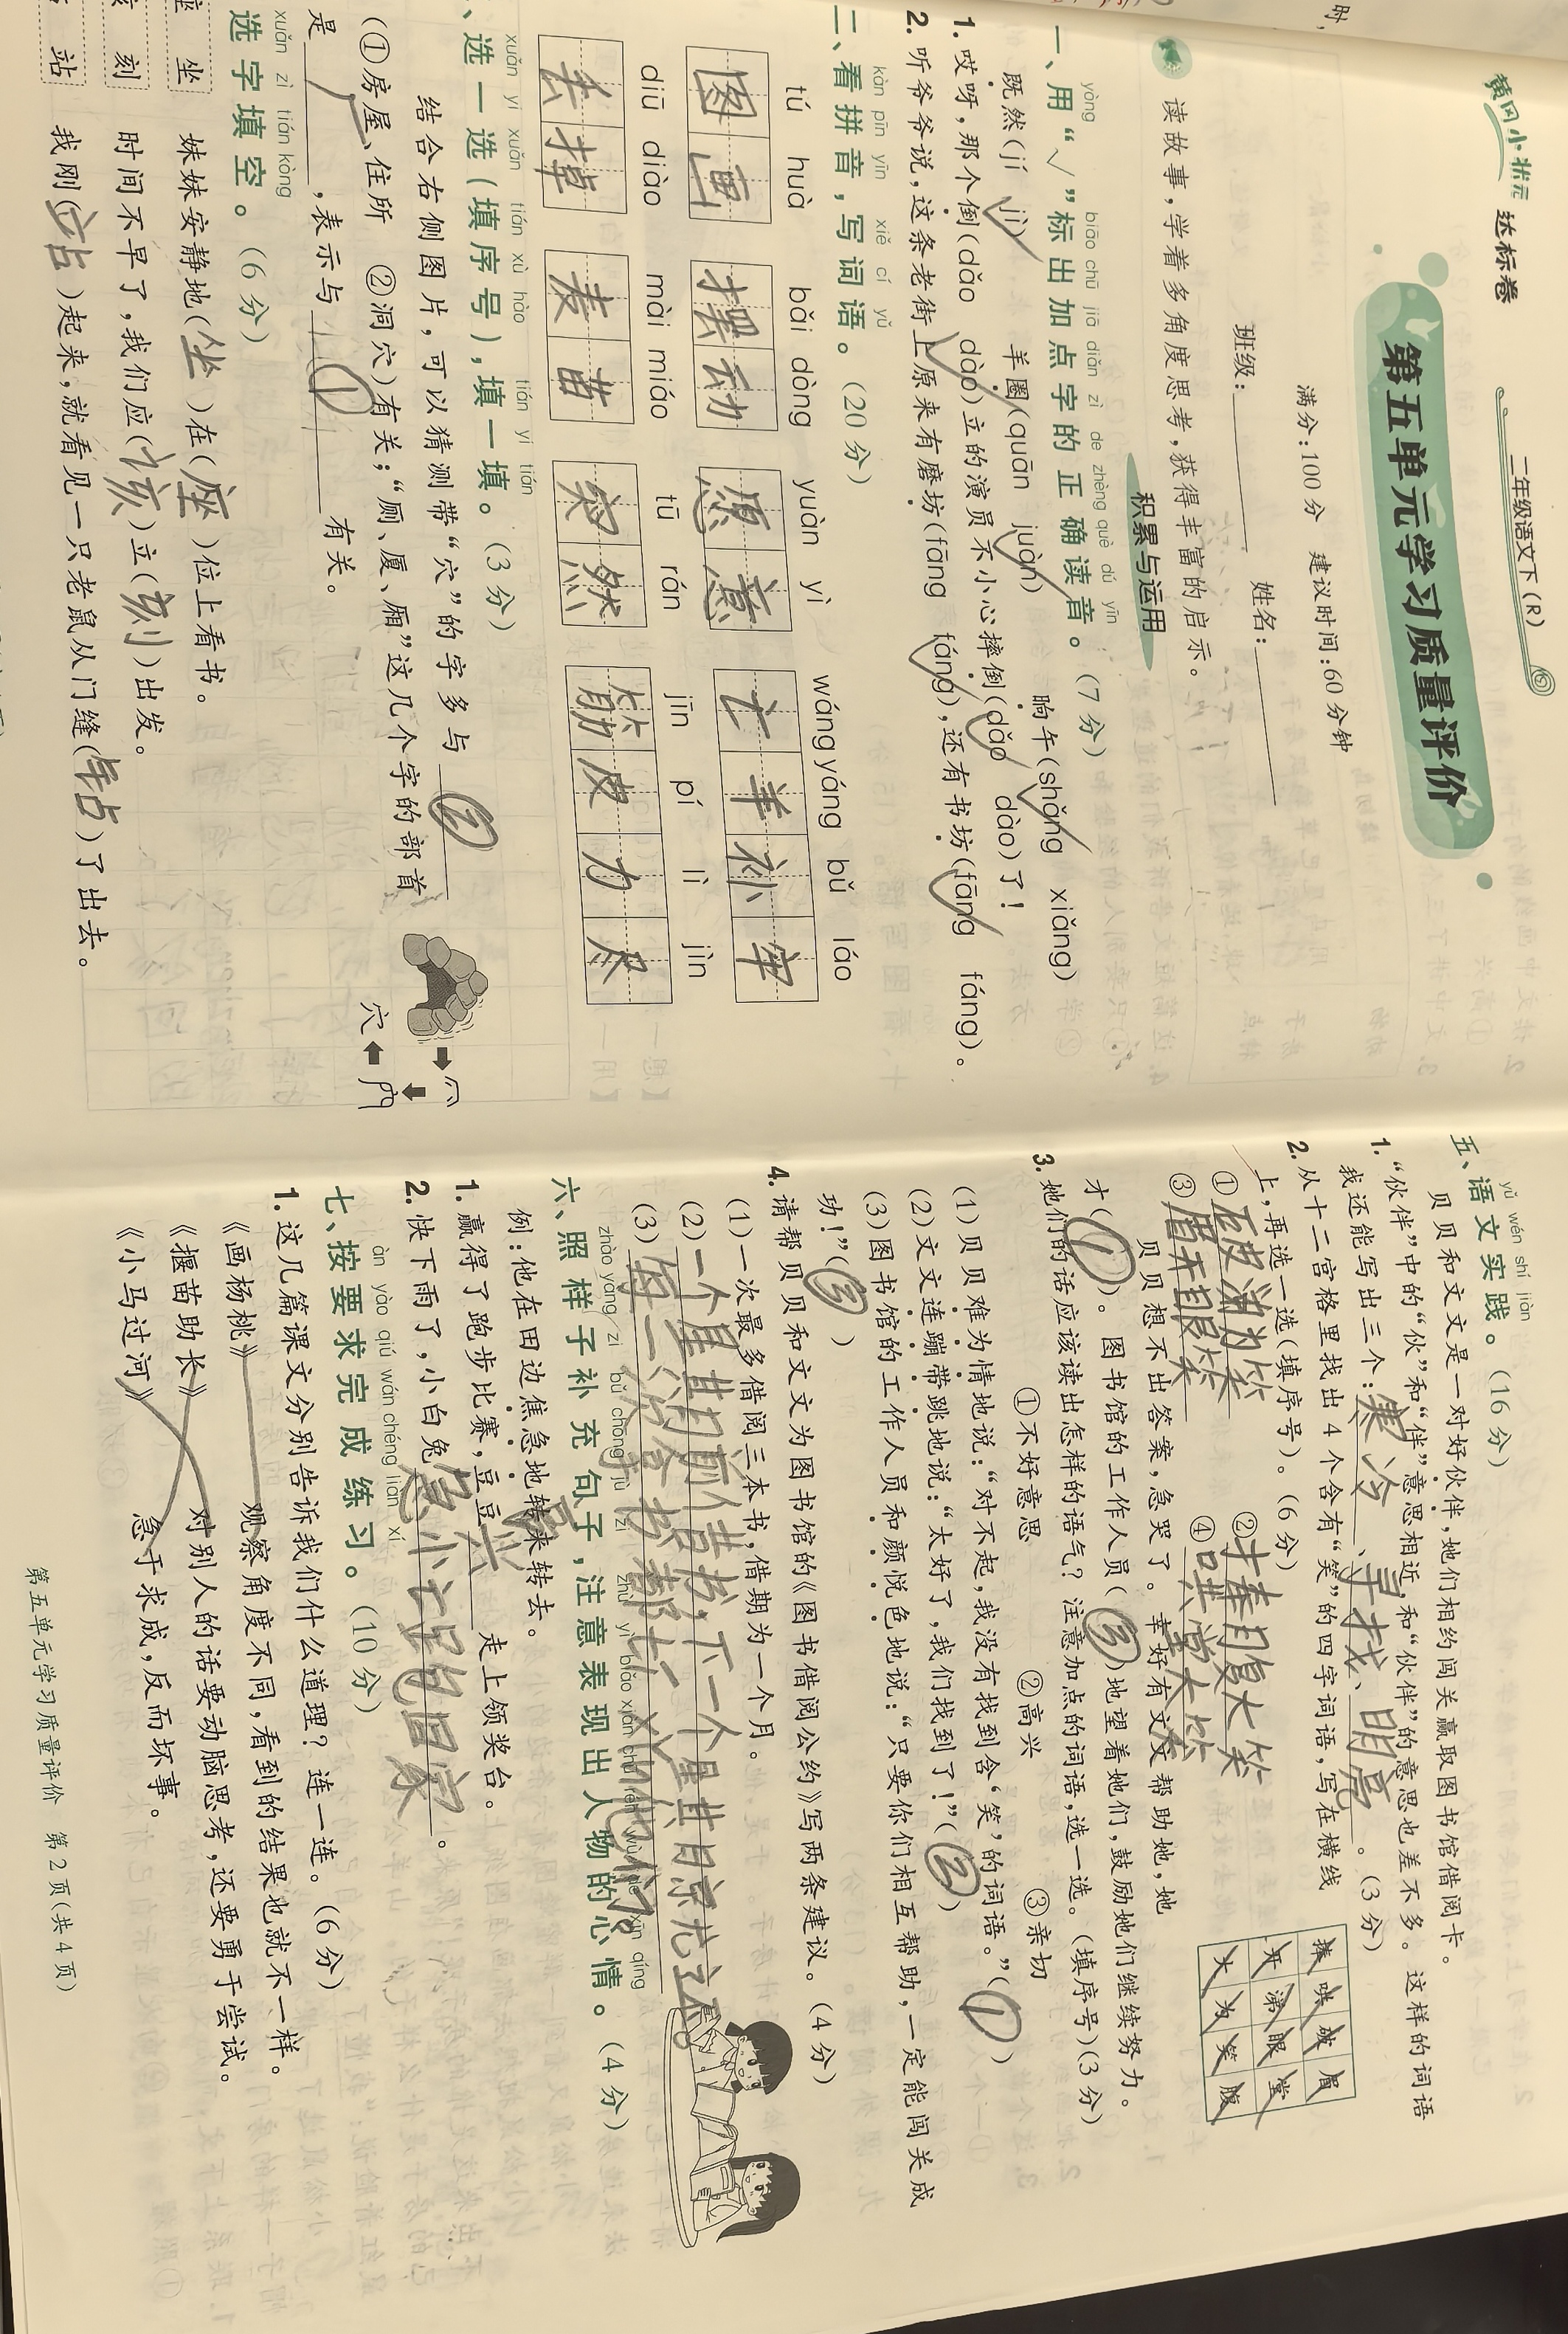 黄冈小状元 达标卷
二年级语文下(R)
第五单元学习质量评价
满分:100分 建议时间:60分钟
班级: 姓名:
读故事,学着多角度思考,获得丰富的启示。
积累与运用
yòng biāo chū jiā diǎn zì de zhèng què dú yīn
一、用“√”标出加点字的正确读音。(7分)
既然(jí jì√) 羊圈(quān juàn√) 晌午(shǎng√ xiǎng)
1. 哎呀,那个倒(dǎo dào√)立的演员不小心摔倒(dǎo√ dào)了!
2. 听爷爷说,这条老街上原来有磨坊(fāng fáng√),还有书坊(fāng√ fáng)。
kàn pīn yīn xiě cí yǔ
二、看拼音,写词语。(20分)
tú huà bǎi dòng yuàn yì wáng yáng bǔ láo
图画 摆动 愿意 亡羊补牢
diū diào mài miáo tū rán jīn pí lì jìn
丢掉 麦苗 突然 筋皮力尽
xuǎn yi xuǎn tián xù hào tián yi tián
、选一选(填序号),填一填。(3分)
结合右侧图片,可以猜测带“穴”的字多与②
(①房屋、住所 ②洞穴)有关;“厕、厦、厢”这几个字的部首
是厂,表示与①有关。
穴
xuǎn zì tián kòng
选字填空。(6分)
坐 妹妹安静地(坐)在(座)位上看书。
刻 时间不早了,我们应(该)立(刻)出发。
站 我刚(站)起来,就看见一只老鼠从门缝(钻)了出去。
yǔ wén shí jiàn
五、语文实践。(16分)
贝贝和文文是一对好伙伴,她们相约闯关赢取图书馆借阅卡。
1. “伙伴”中的“伙”和“伴”意思相近,和“伙伴”的意思也差不多。这样的词语
我还能写出三个:寒冷、寻找、明亮。(3分)
2. 从十二宫格里找出4个含有“笑”的四字词语,写在横线
上,再选一选(填序号)。(6分)
捧 哄 破 眉
开 涕 眼 堂
大 为 笑 腹
①破涕为笑 ②捧腹大笑
③眉开眼笑 ④哄堂大笑
贝贝想不出答案,急哭了。幸好有文文帮助她,她
才(①)。图书馆的工作人员(③)地望着她们,鼓励她们继续努力。
3. 她们的话应该读出怎样的语气?注意加点的词语,选一选。(填序号)(3分)
①不好意思 ②高兴 ③亲切
(1)贝贝难为情地说:“对不起,我没有找到含‘笑’的词语。”(①)
(2)文文连蹦带跳地说:“太好了,我们找到了!”(②)
(3)图书馆的工作人员和颜悦色地说:“只要你们相互帮助,一定能闯关成
功!”(③)
4. 请帮贝贝和文文为图书馆的《图书借阅公约》写两条建议。(4分)
(1)一次最多借阅三本书,借期为一个月。
(2)一个星期前借书,下一个星期
(3)每一次
zhào yàng zi bǔ chōng jù zi zhù yì biǎo xiàn chū rén wù de xīn qíng
六、照样子补充句子,注意表现出人物的心情。(4分)
例:他在田边焦急地转来转去。
1. 赢得了跑步比赛,豆豆高兴走上领奖台。
2. 快下雨了,小白兔急忙跑回家。
àn yào qiú wán chéng liàn xí
七、按要求完成练习。(10分)
1. 这几篇课文分别告诉我们什么道理?连一连。(6分)
《画杨桃》 观察角度不同,看到的结果也就不一样。
《揠苗助长》 对别人的话要动脑思考,还要勇于尝试。
《小马过河》 急于求成,反而坏事。
第五单元学习质量评价 第2页(共4页)